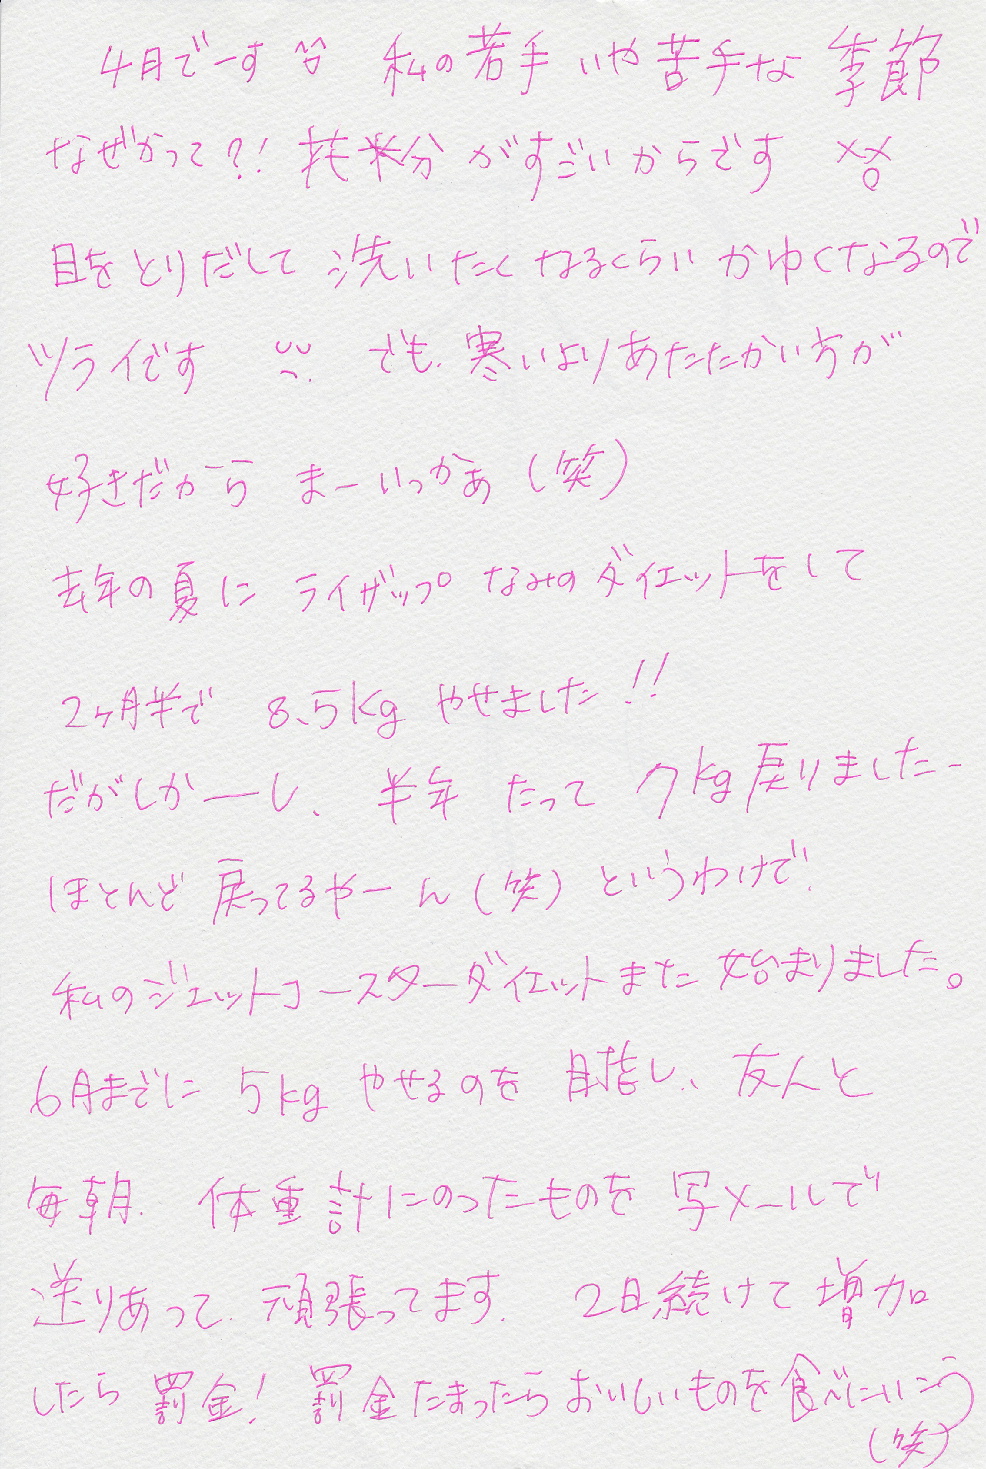 4月でーす ^^ 私の若手いや苦手な季節
なぜかって?! 花粉がすごいからです
目をとりだして洗いたくなるくらいかゆくなるので
ツライです でも、寒いよりあたたかい方が
好きだから まーいっかぁ (笑)
去年の夏に ライザップなみのダイエットをして
2ヶ月半で 8.5kg やせました!!
だがしかーし、半年 たって 7kg戻りました-
ほとんど 戻ってるやーん (笑) というわけで、
私のジェットコースターダイエットまた始まりました。
6月までに 5kg やせるのを 目指し、友人と
毎朝、体重計にのったものを 写メールで
送りあって、頑張ってます。 2日続けて増加
したら 罰金! 罰金たまったらおいしいものを食べにいこう
(笑)